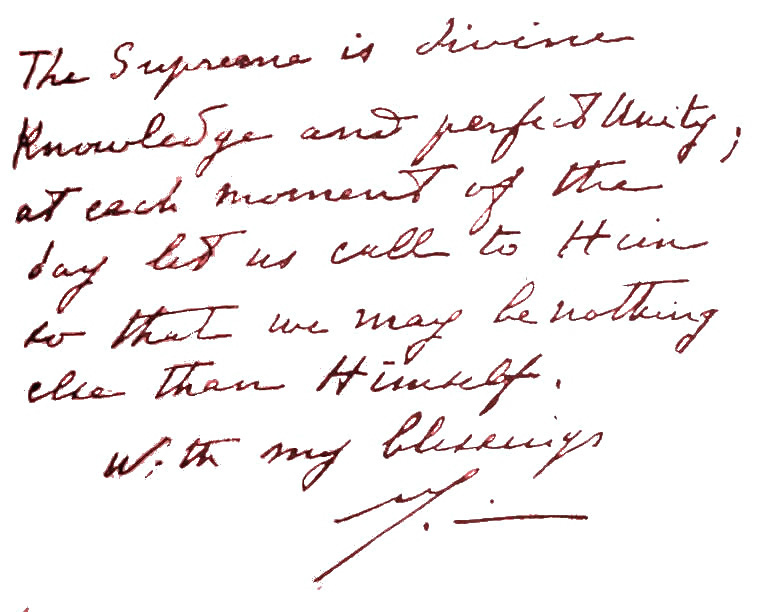 The Supreme is divine
Knowledge and perfect Unity;
at each moment of the
day let us call to Him
so that we may be nothing
else than Himself.
With my blessings